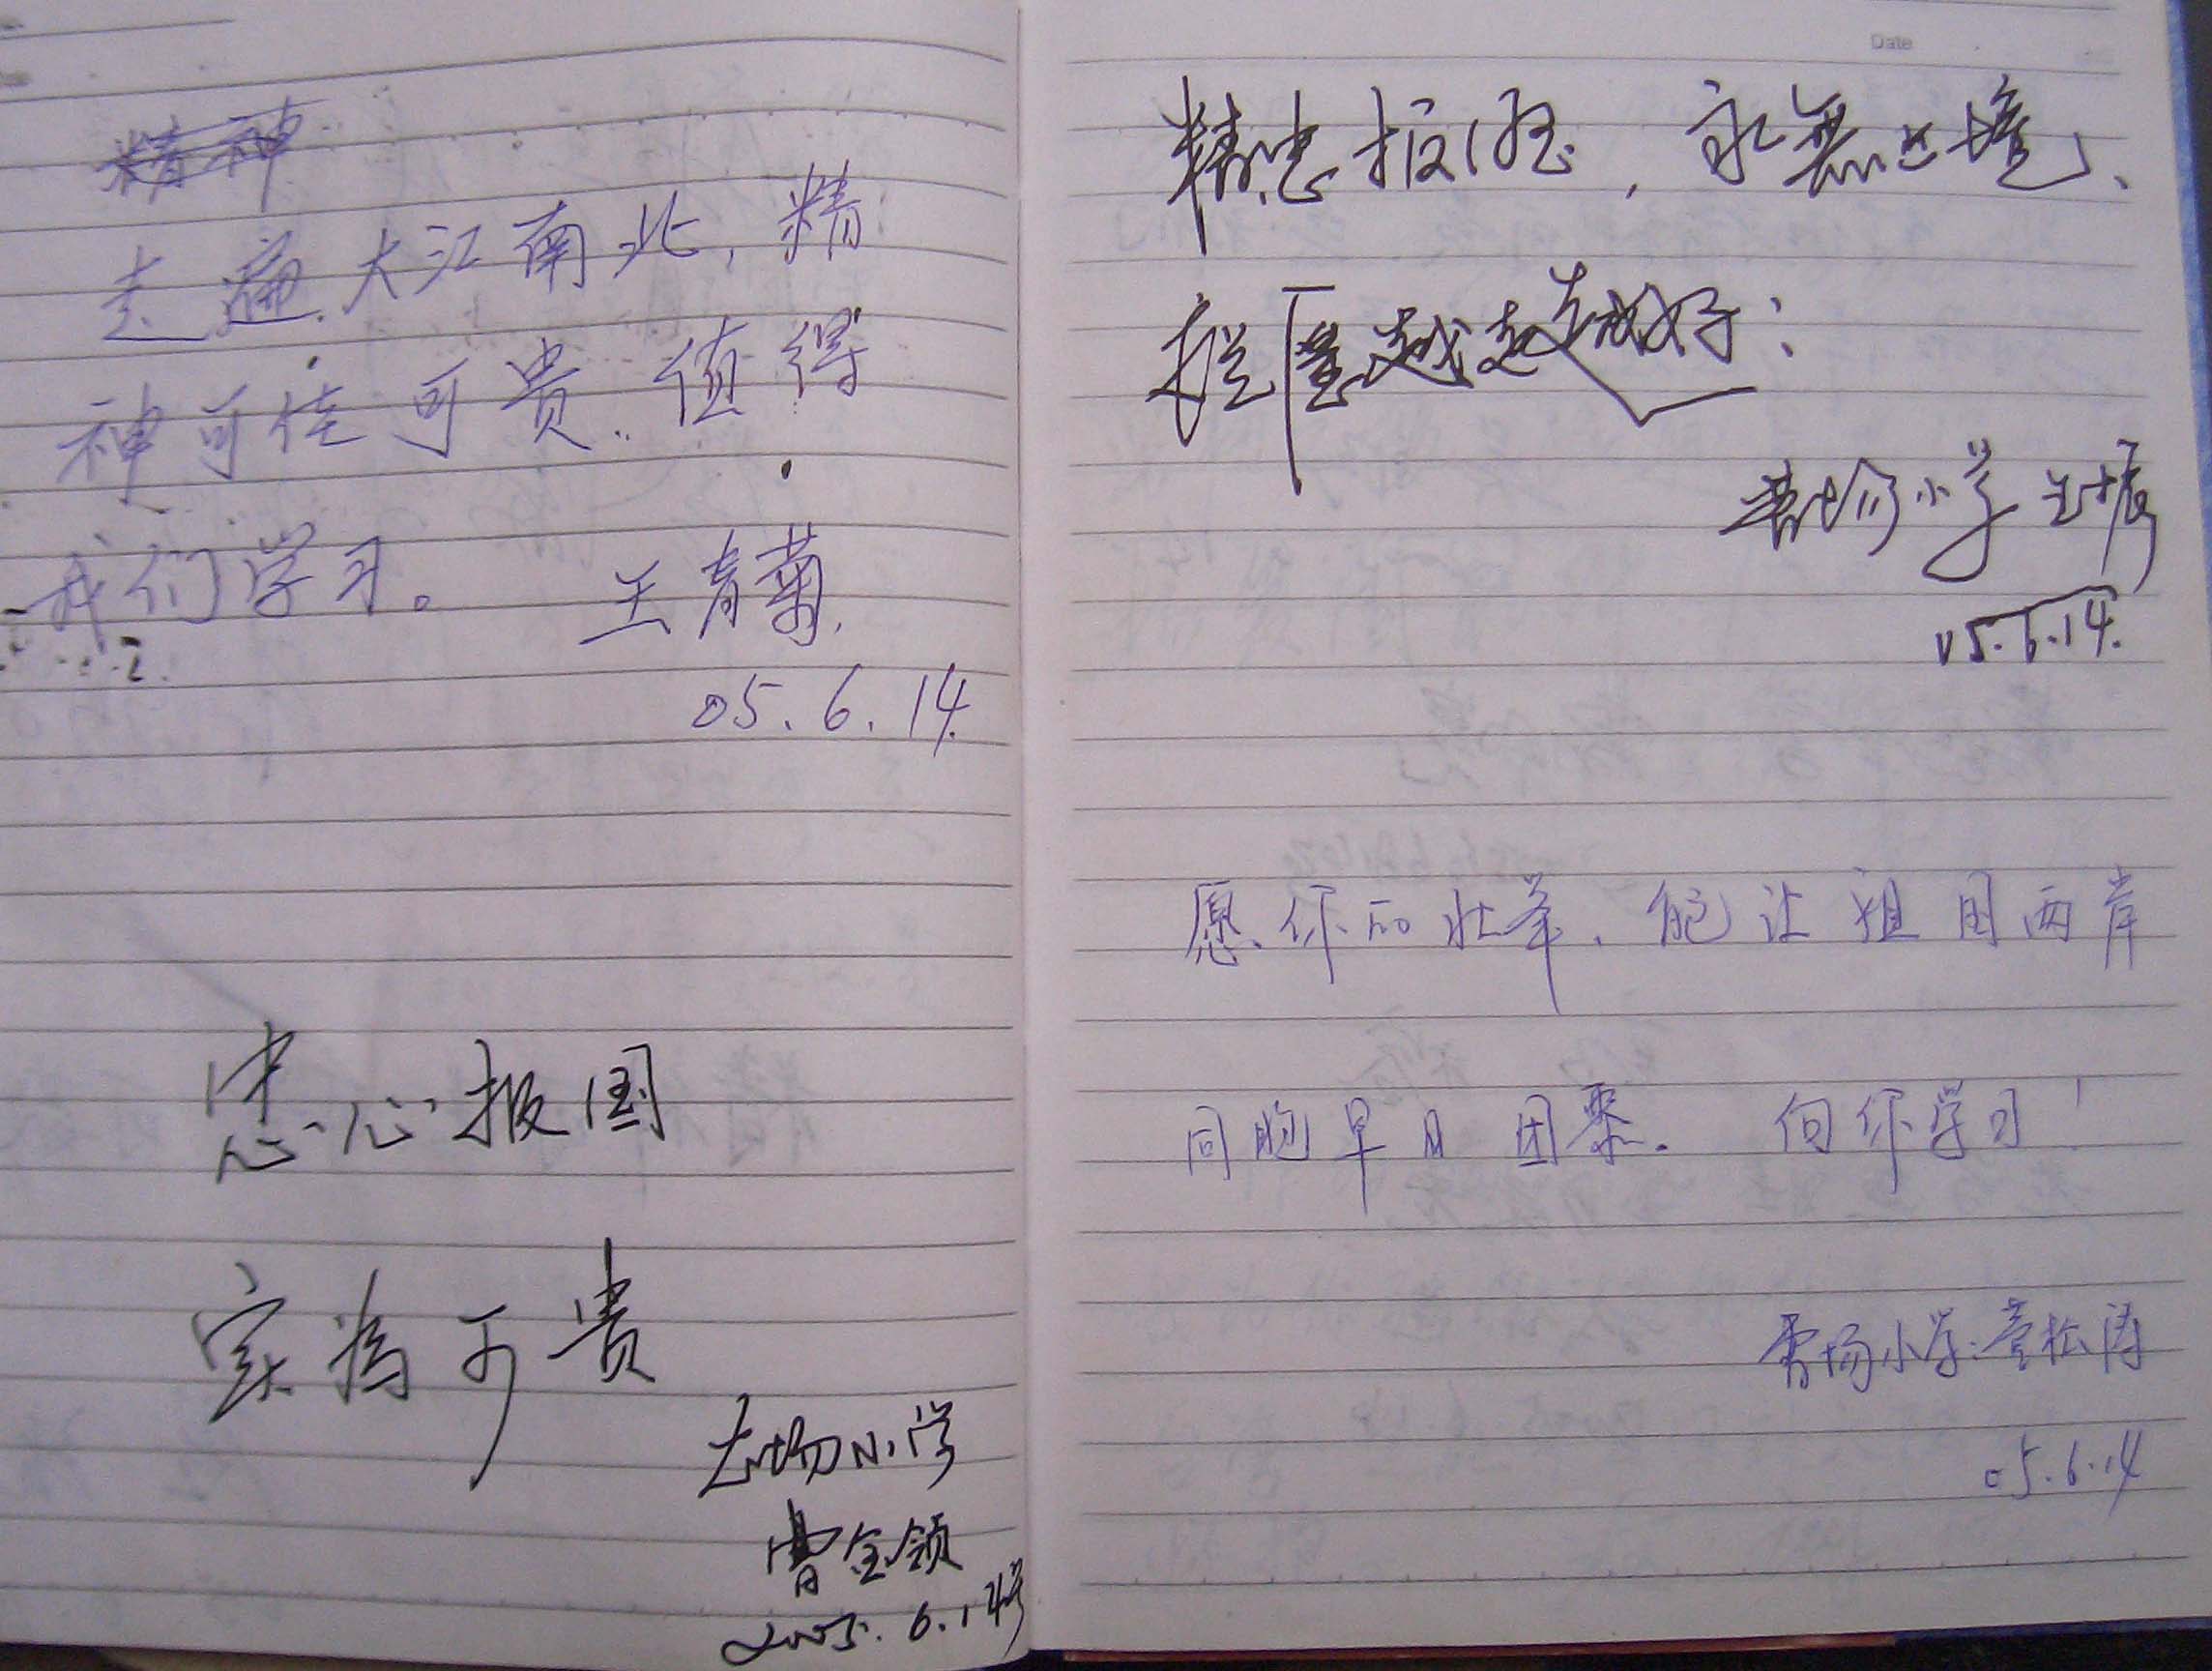 精神
走遍大江南北,精
神可佳可贵.值得
我们学习。 王青菊.
05.6.14.
忠心报国
实为可贵
场小学
曹金领
2005.6.14号
Date
精忠报国,永無止境、
越走越好:
小学
05.6.14.
愿你的壮举、能让祖国两岸
同胞早日团聚. 向你学习!
场小学:董松涛
05.6.14